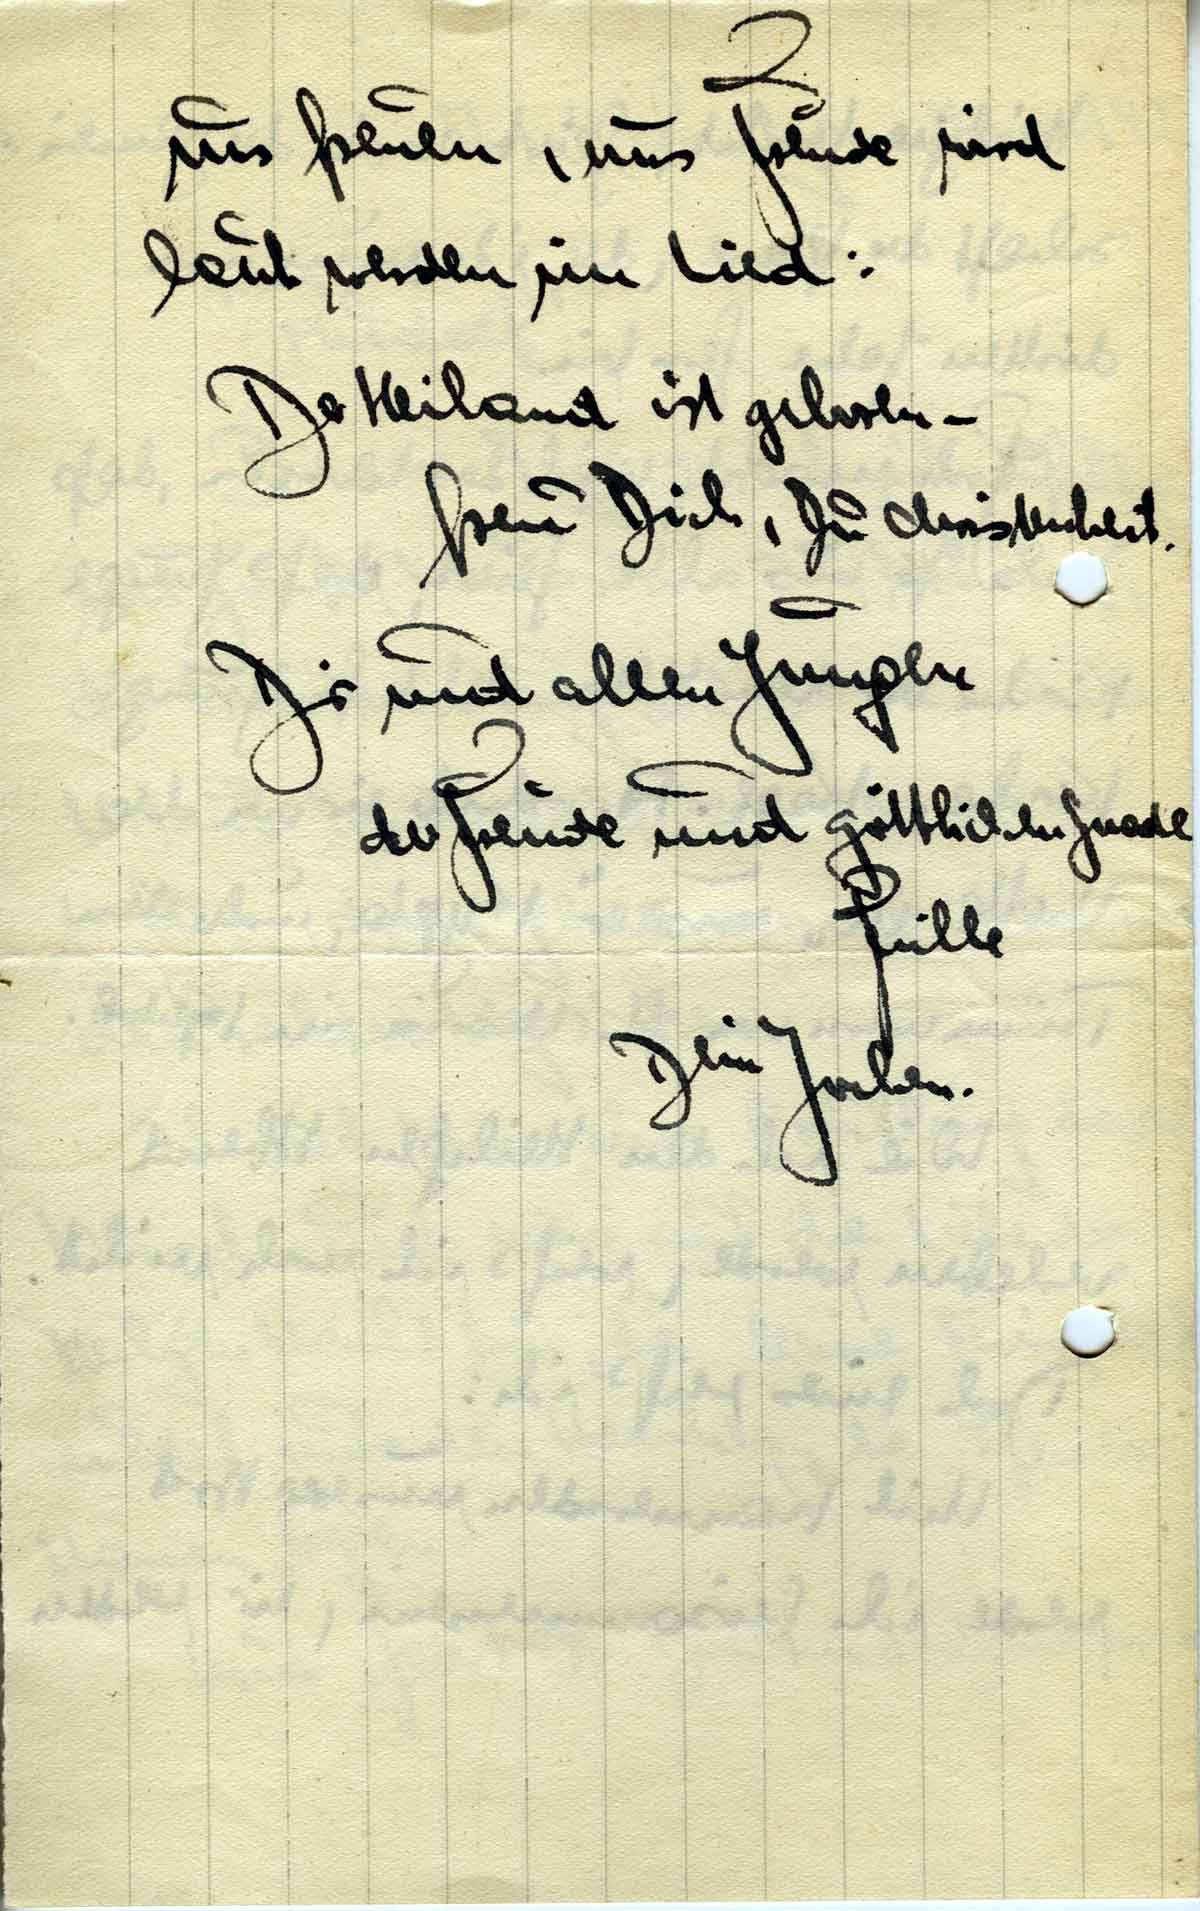 2
uns freuen, uns Freude wird
laut werden im Lied:
Der Heiland ist geboren –
freu Dich, Du Christenheit.
Dir und allen Jungen
der Freude und göttlichen Gnade
Fülle
Dein Jochen.